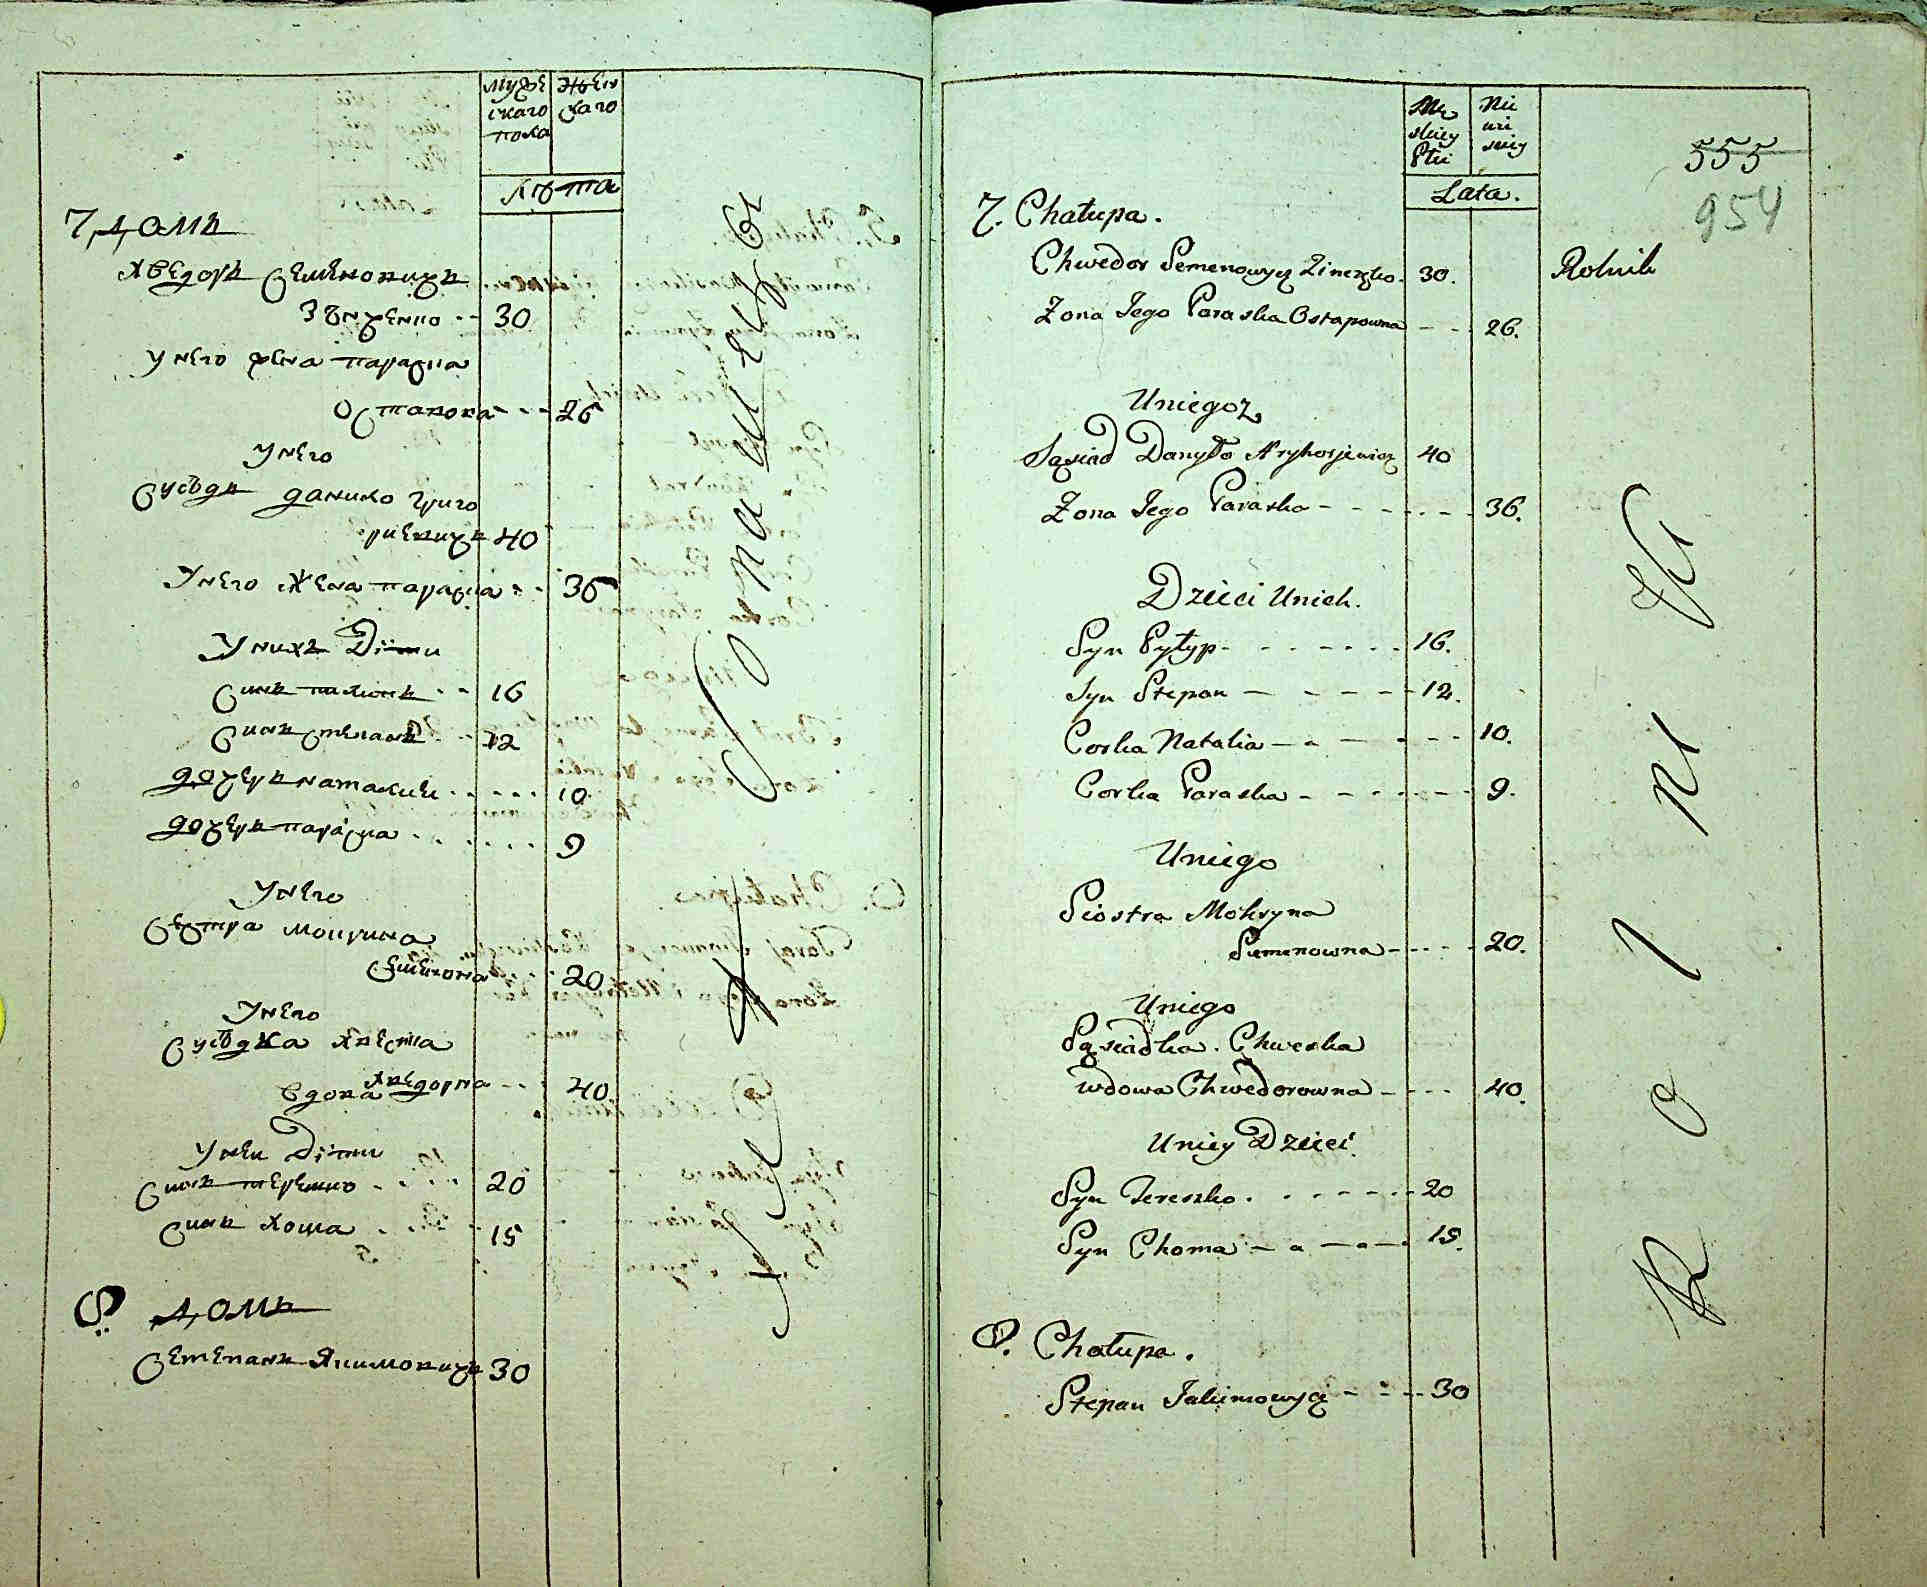 Мужескаго пола
Женскаго
Лѣта
7, домъ
Хведоръ Семеновичъ
Зѣнченко 30
У него жена Параска
Остапова 26
У него
Сусѣдъ Данило Григо
риевичъ 40
У него жена Параска 36
У нихъ Дѣти
Синъ Пилипъ 16
Синъ Степанъ 12
дочеръ Наталия 10
дочеръ Параска 9
У него
Сестра Мокрина
Семенова 20
У него
Сусѣдка Хвеска
вдова Хведорова 40
У неи Дѣти
Синъ Терешко 20
Синъ Хома 15
8. домъ
Сетепанъ Якимовичъ 30
Męskiey Płci
Niewieściey
Lata.
555
954
7. Chałupa.
Chwedor Semenowycz Zinczko. 30. Rolnik
Żona Jego Paraska Ostapowna 26.
U niegoż
Sąsiad Danyło Hryhorjewicz 40
Żona Jego Paraska 36.
Dzieci U nich.
Syn Pyłyp 16.
Syn Stepan 12.
Corka Natalia 10.
Corka Paraska 9.
U niego
Siostra Mokryna
Semenowna 20.
U niego
Sąsiadka. Chweska
wdowa Chwedorowna 40.
U niey Dzieci.
Syn Tereszko. 20
Syn Choma 15.
8. Chałupa.
Stepan Jakimowycz 30
Rolniki